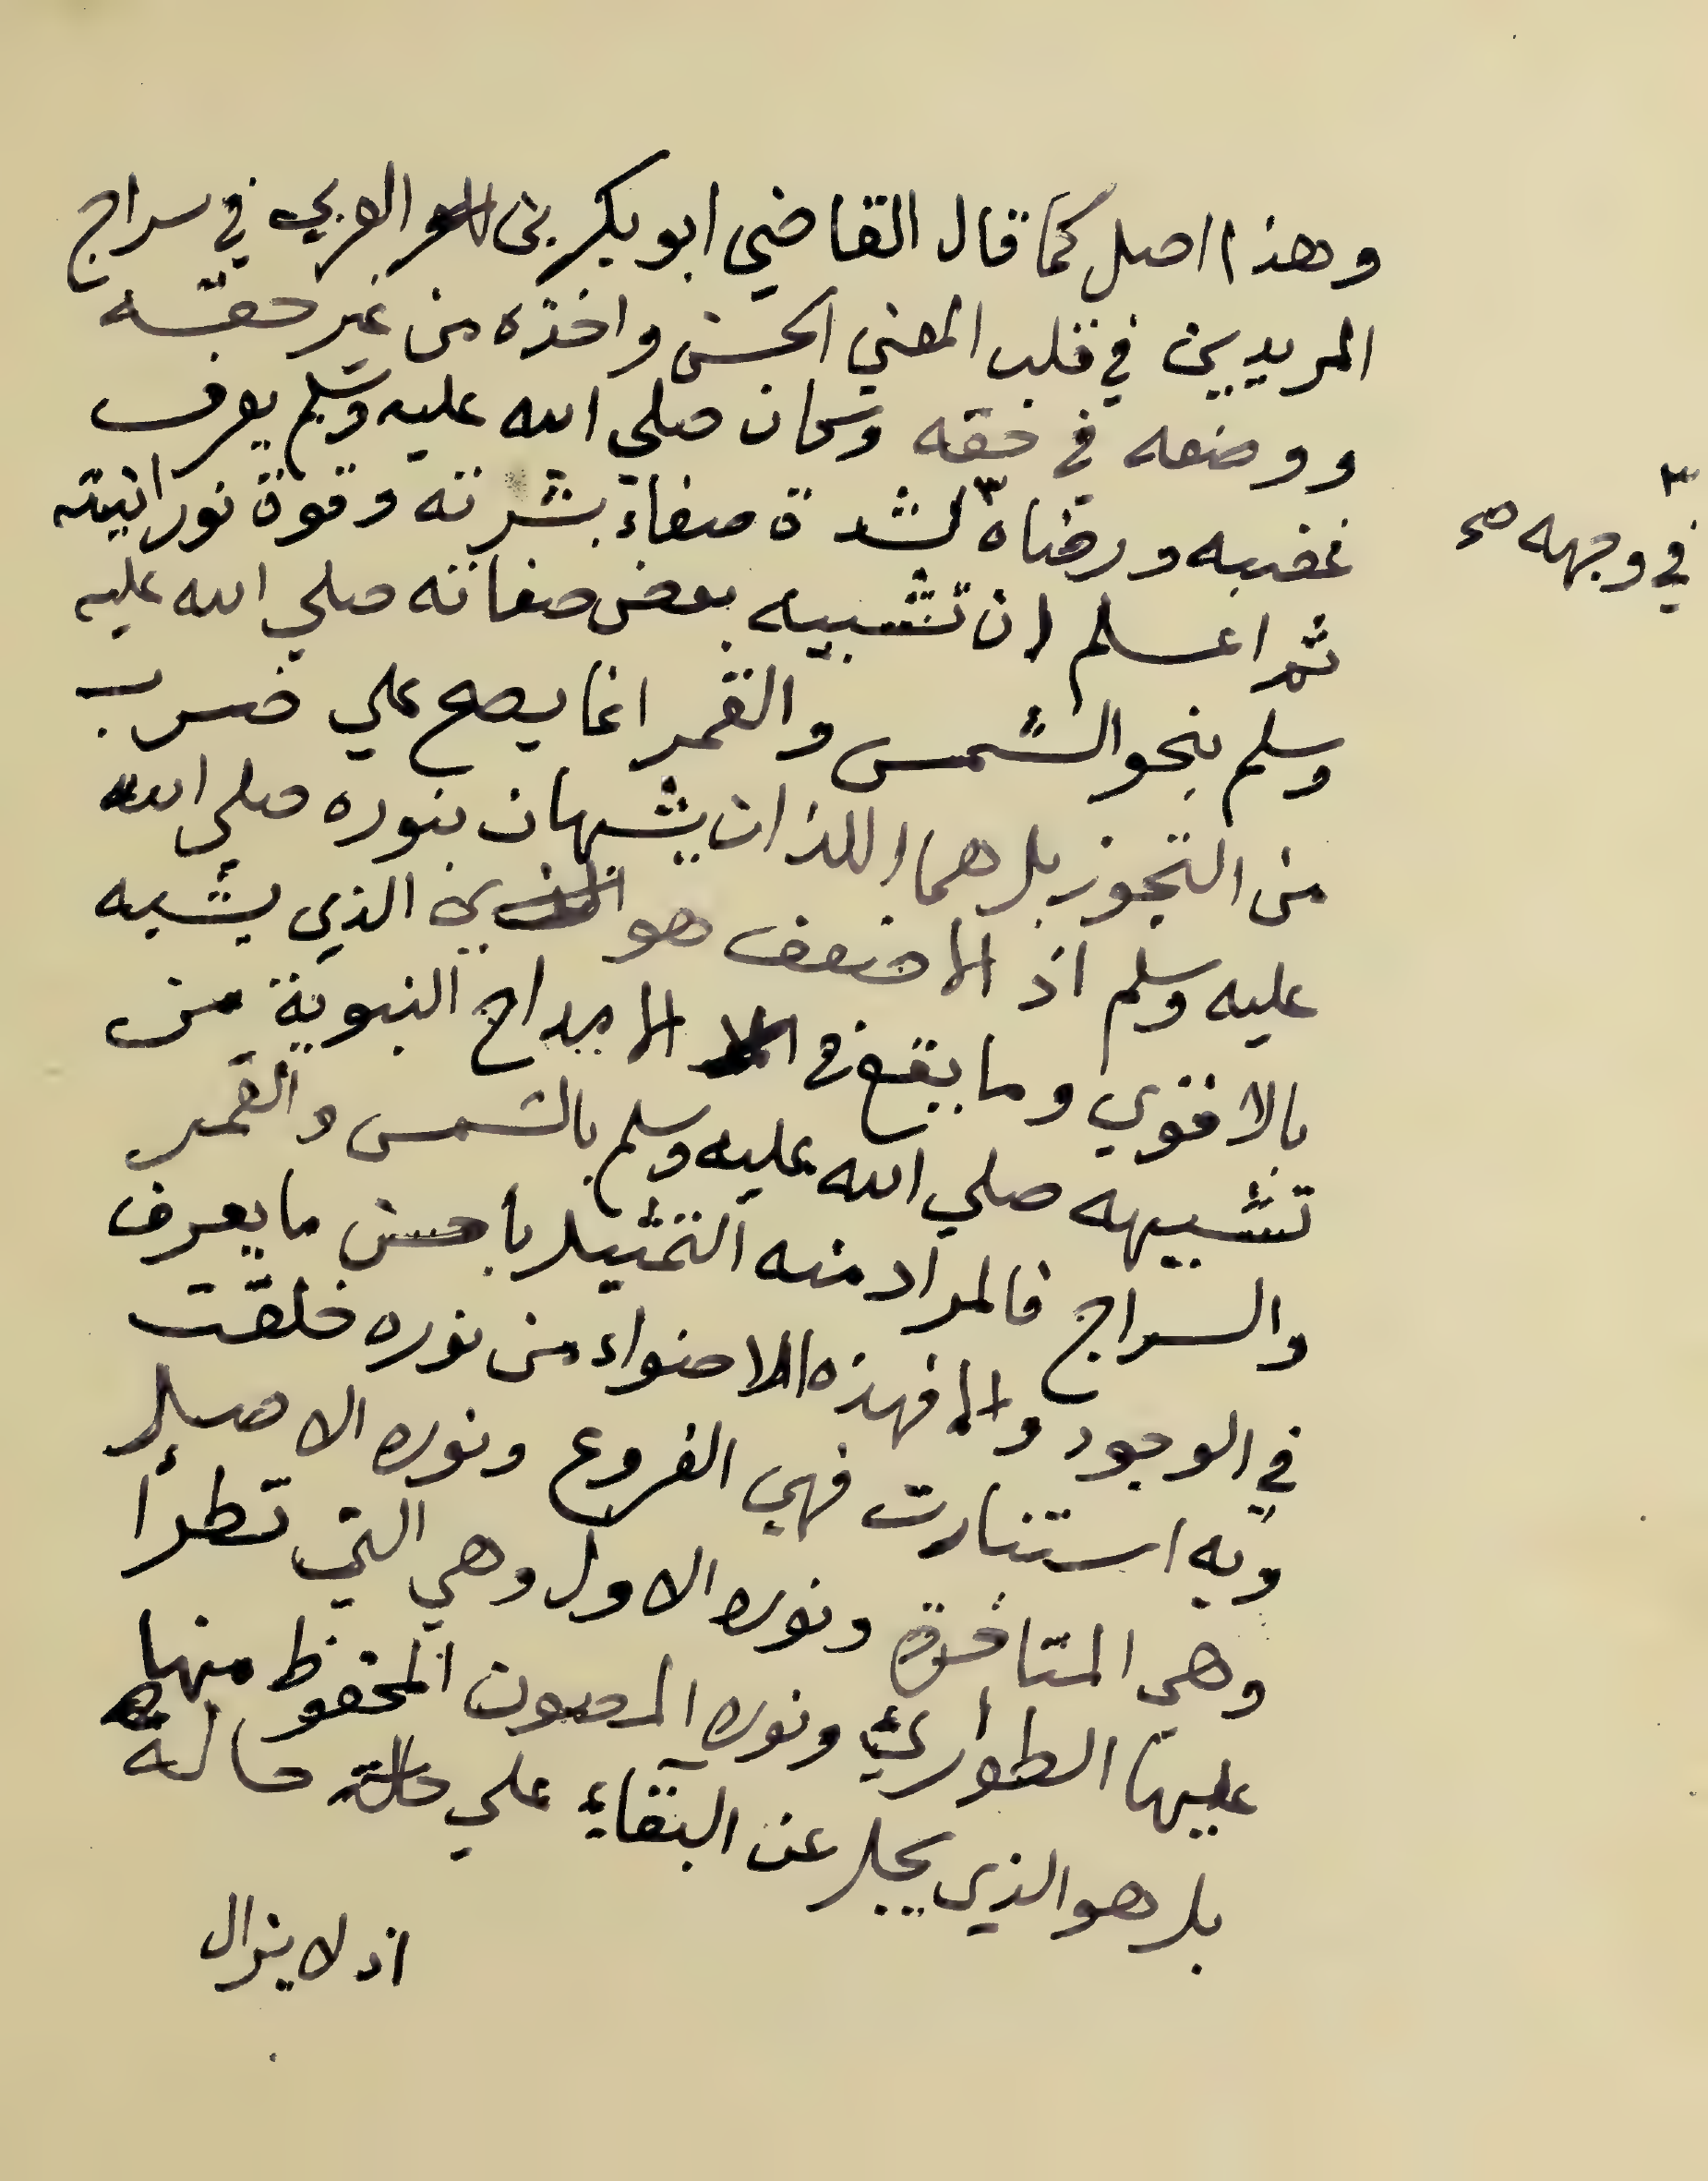 وهذا اصل كما قال القاضي ابو بكر بن العربي في سراج
المريدين في قلب المعني الحسن واخذه من غير حقه
ووضعه في حقه وكان صلي الله عليه وسلم يعرف
غضبه ورضاه ٣ لشدة صفاء بشرته وقوة نورانيته
٣ في وجهه صح
ثم اعلم ان تشبيه بعض صفاته صلي الله عليه
وسلم بنحو الشمس والقمر انما يصح علي ضرب
من التجوز بل هما اللذان يشبهان بنوره صلي الله
عليه وسلم اذ الاضعف هو الذي يشبه
بالاقوي وما يقع في الامداح النبوية من
تشبيهه صلي الله عليه وسلم بالشمس والقمر
والسراج فالمراد منه التمثيل باحسن ما يعرف
في الوجود والا فهذه الاضواء من نوره خلقت
وبه استنارت فهي الفروع ونوره الاصل
وهي المتاخرة ونوره الاول وهي التي تطرأ
عليها الطوارئ ونوره المصون المحفوظ منها
بل هو الذي يجل عن البقاء علي حالة
اذ لا يزال